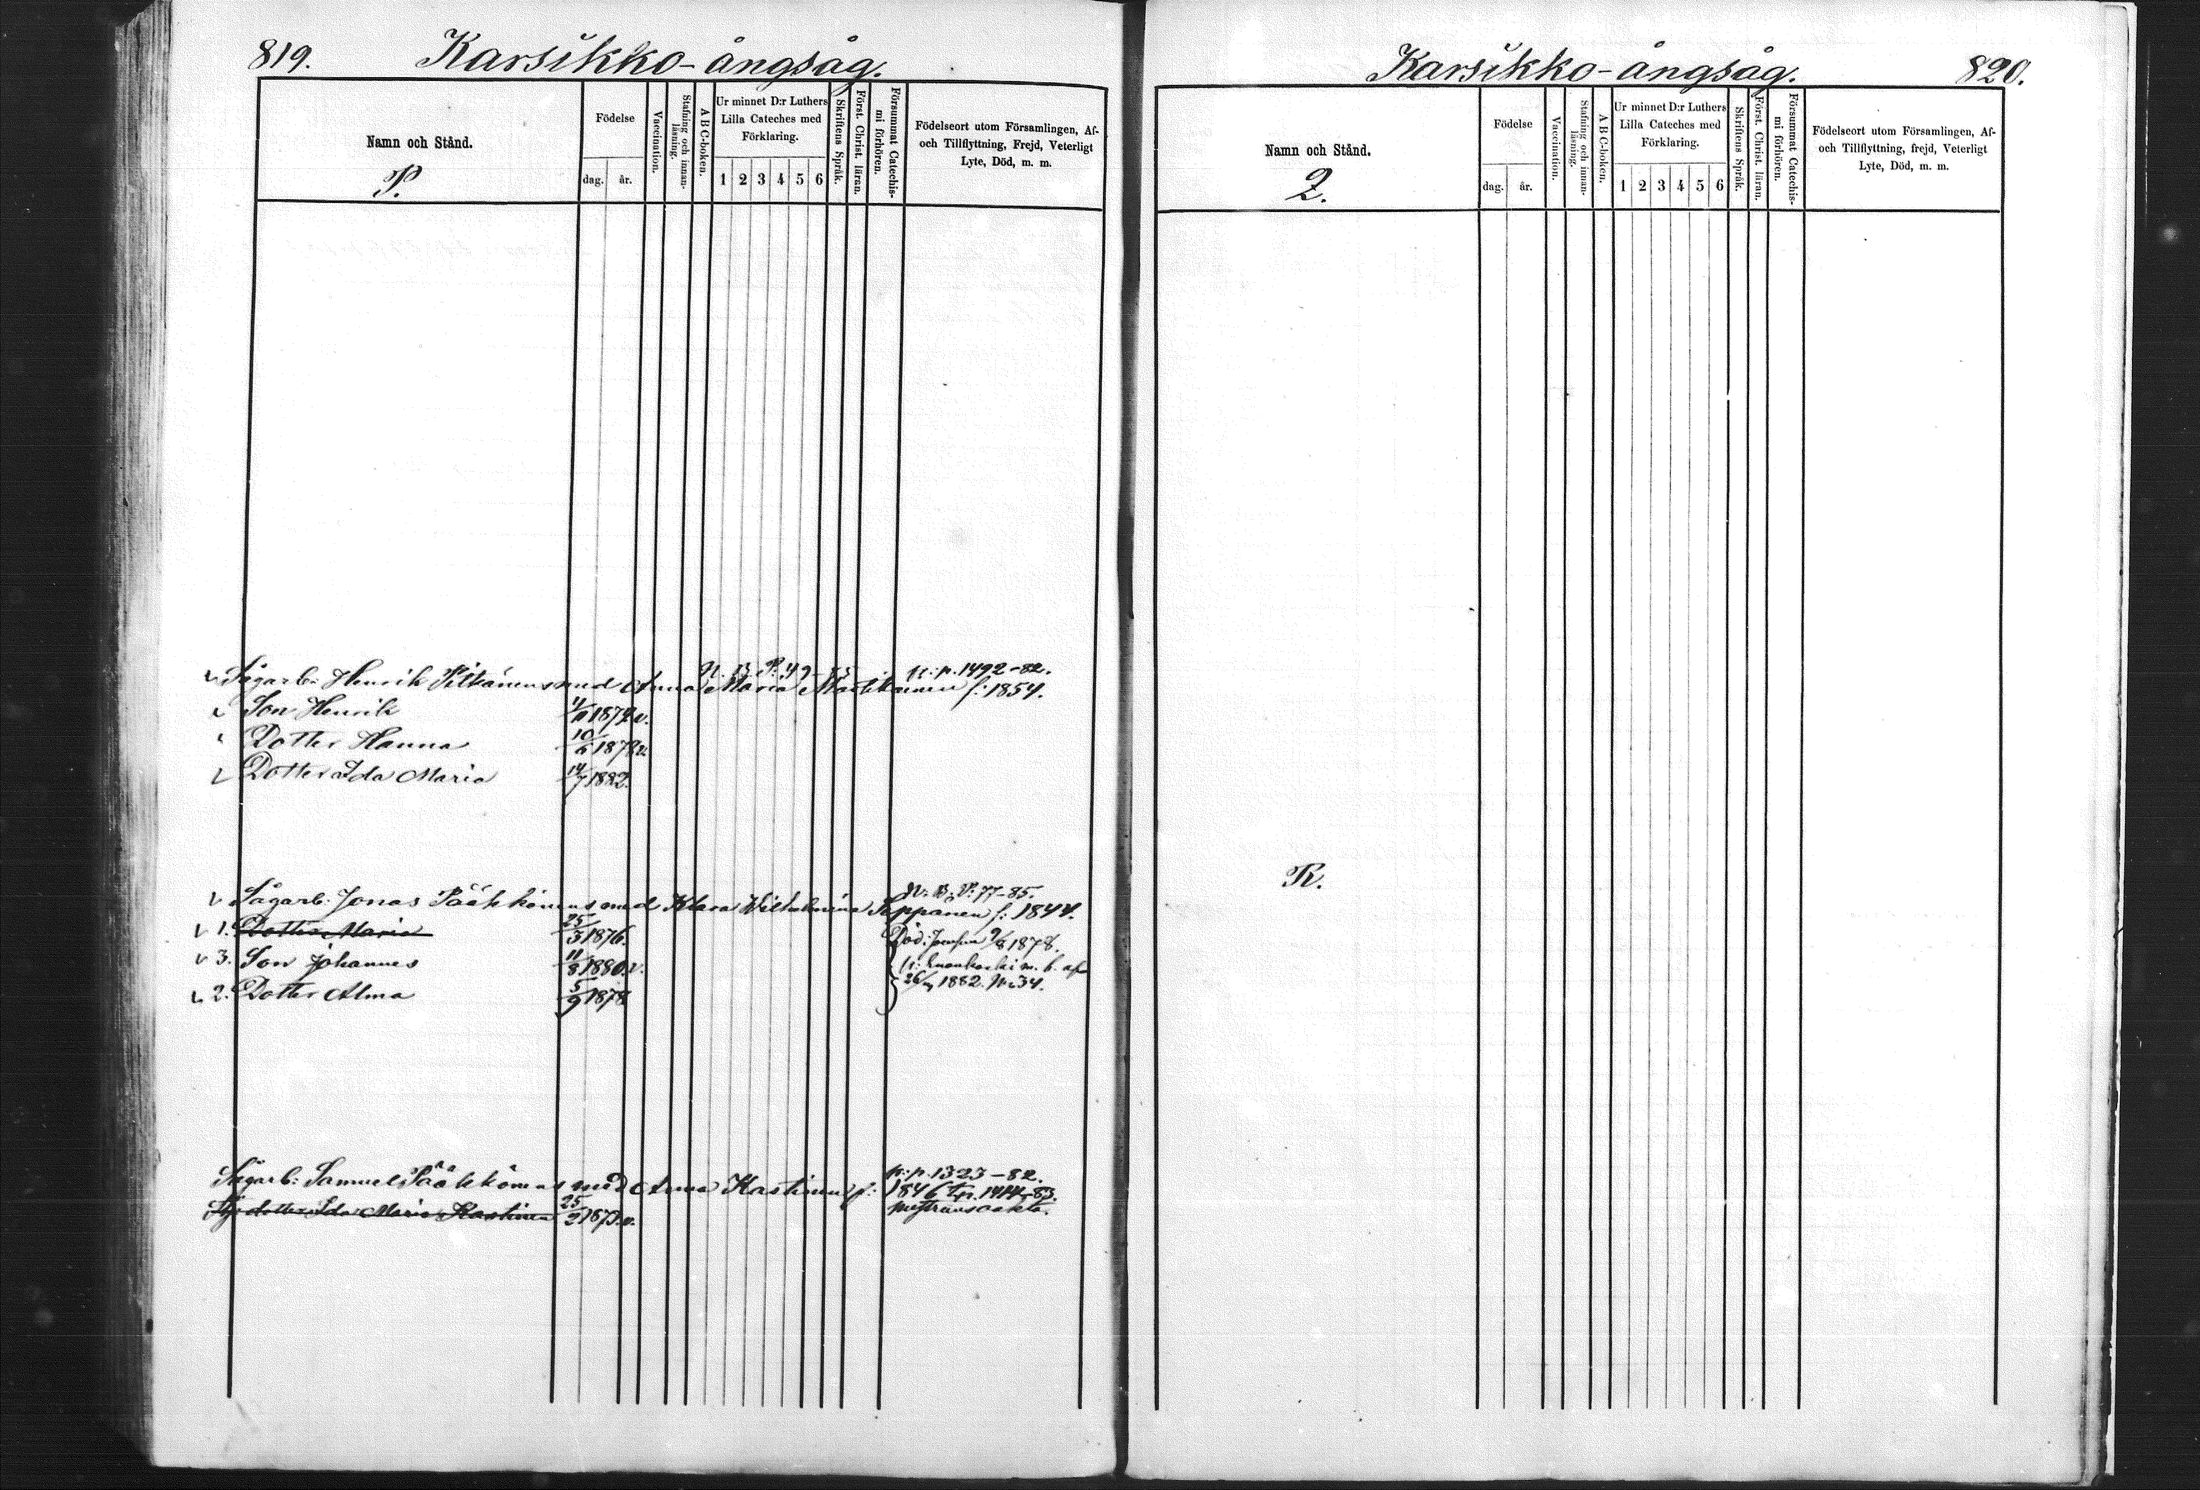 819.
Karsikko-ångsåg.
Namn och Stånd.
P.
Födelse
dag. år.
Vaccination.
Stafning och innan-
läsning.
A B C-boken.
Ur minnet D:r Luthers
Lilla Cateches med
Förklaring.
1 2 3 4 5 6
Skriftens Språk.
Först. Christ. läran.
Försummat Catechis-
mi förhören.
Födelseort utom Församlingen, Af-
och Tillflyttning, Frejd, Veterligt
Lyte, Död, m. m.
p:p. 1492-82.
Sågarb: Henrik Pitkänens med Anna Maria f: 1854.
Son Henrik
Dotter Hanna 10 1878 v.
Dotter Ida Maria 14/7 1882.
N: B: P: 77-85.
Sågarb: Jonas Pääkkönens med Klara Wilhelmina Seppänen f: 1844.
1. Dotter Maria 25/3 1876.
3. Son Johannes 11/8 1880. v.
26 1882. N:o 34.
2. Dotter Alma 5/9 1878
p:p. 1323-82.
Sågarb: Samuel Pääkkönens med Anna f: 1846
dotter Ida Maria 25/2
Karsikko-ångsåg.
820.
Namn och Stånd.
Q.
Födelse
dag. år.
Vaccination.
Stafning och innan-
läsning.
A B C-boken.
Ur minnet D:r Luthers
Lilla Cateches med
Förklaring.
1 2 3 4 5 6
Skriftens Språk.
Först. Christ. läran.
Försummat Catechis-
mi förhören.
Födelseort utom Församlingen, Af-
och Tillflyttning, frejd, Veterligt
Lyte, Död, m. m.
R.